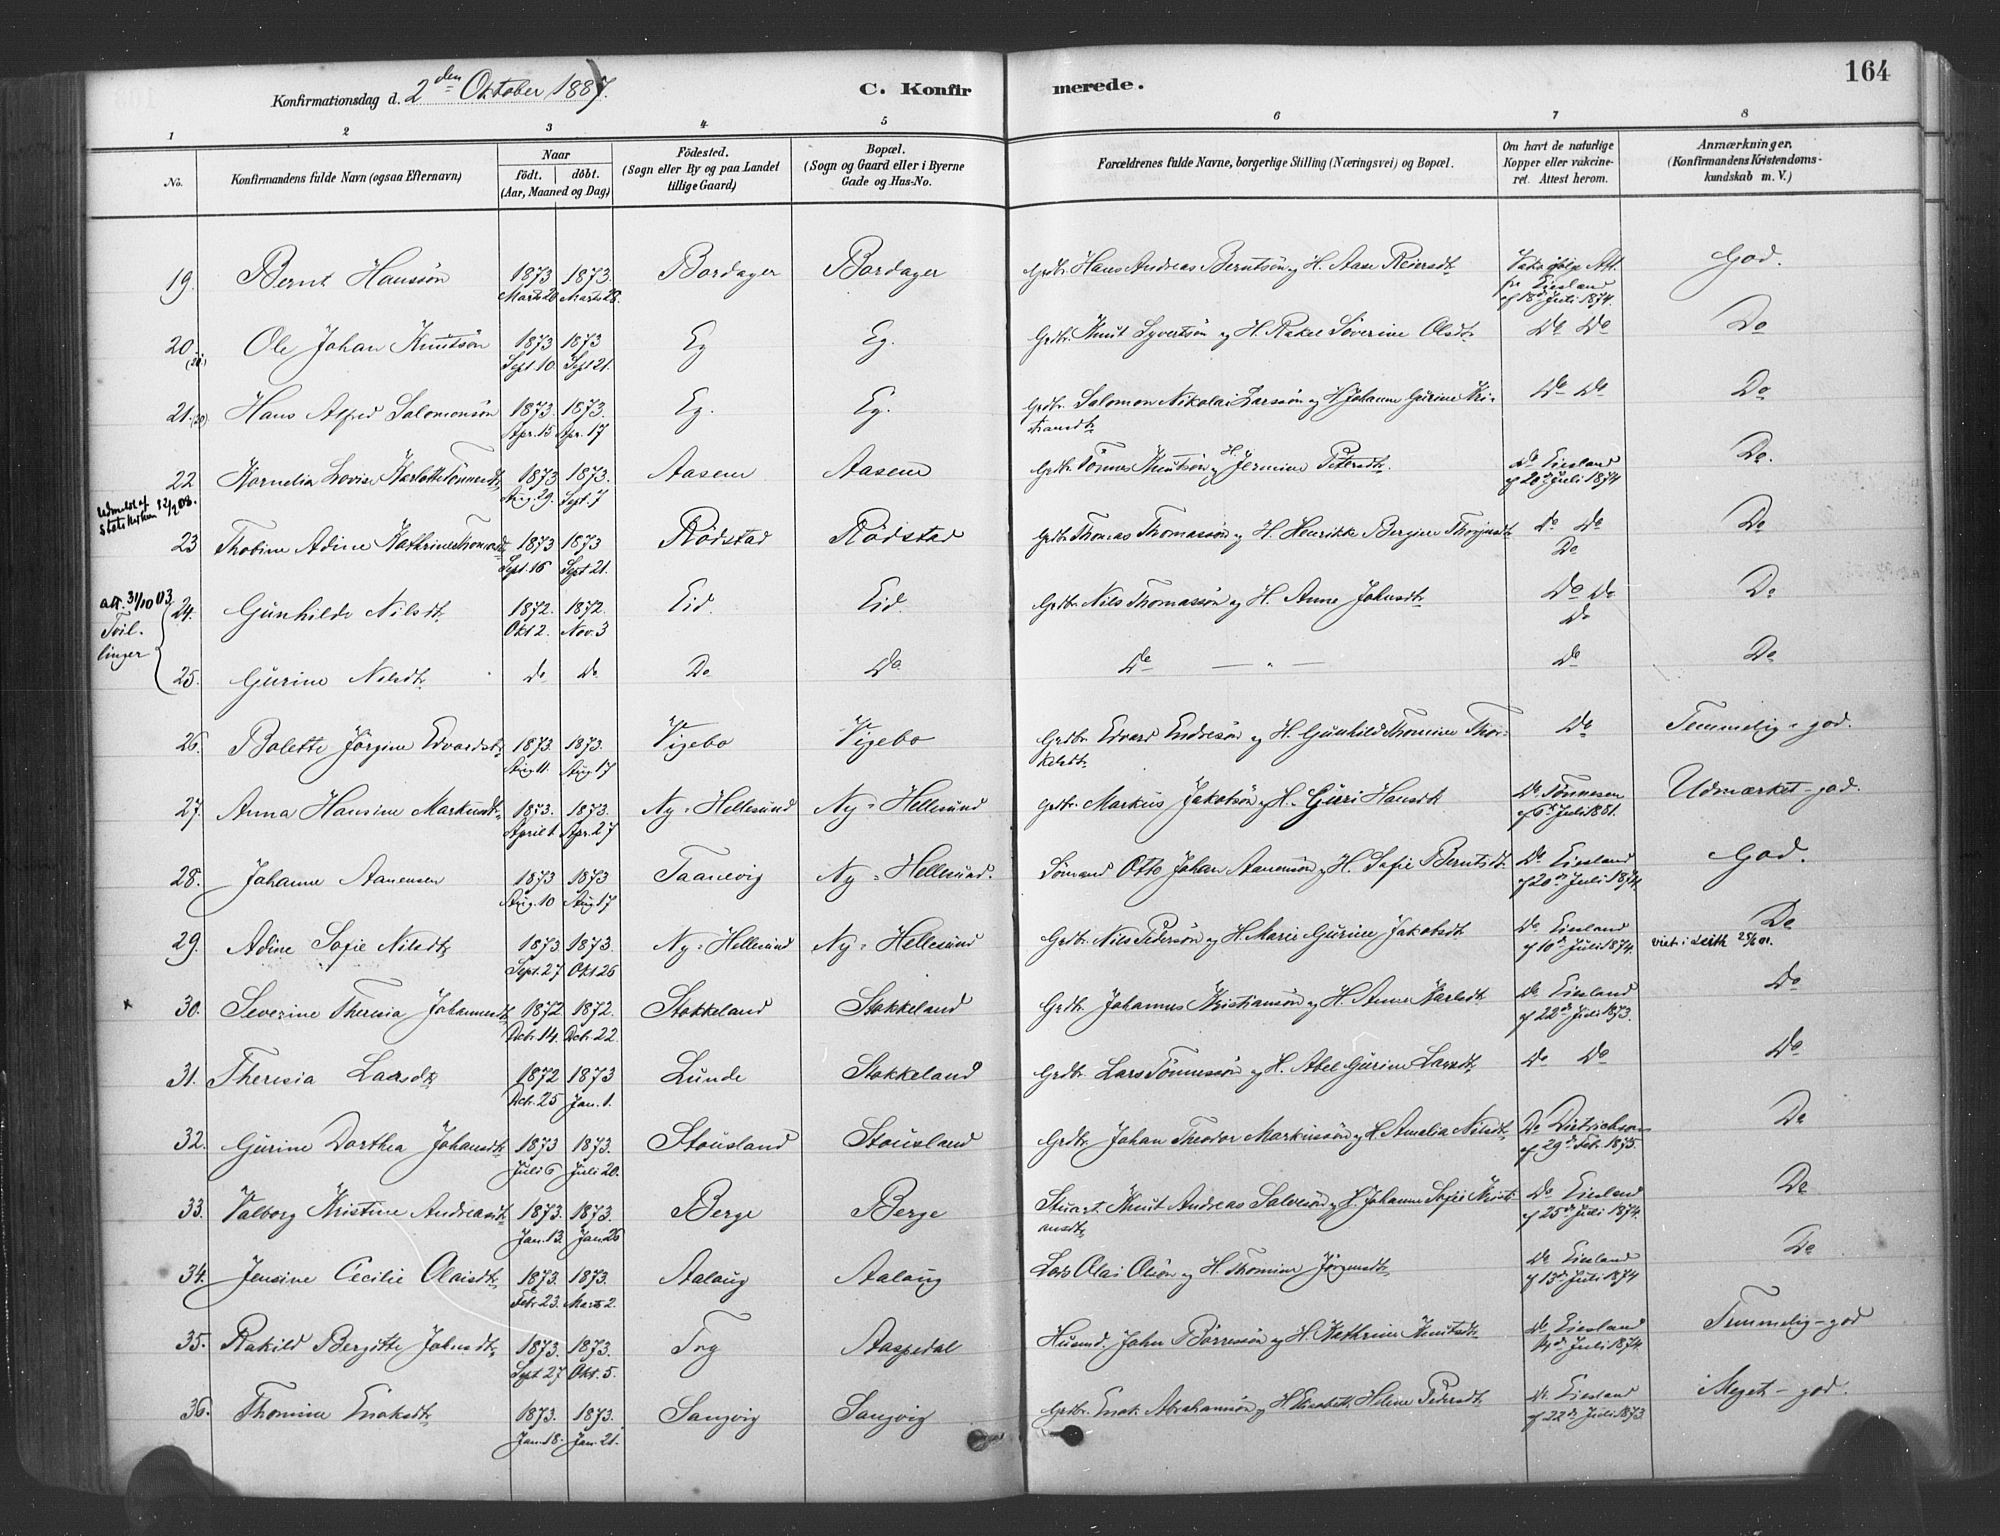 164
Konfirmationsdag d. 2den Oktober 1887.
C. Konfirmerede.
1 2 3 4 5 6 7 8
No.
Konfirmandens fulde Navn (ogsaa Efternavn)
Naar
födt. döbt.
(Aar, Maaned og Dag)
Födested.
(Sogn eller By og paa Landet
tillige Gaard)
Bopæl.
(Sogn og Gaard eller i Byerne
Gade og Hus-No.
Forældrenes fulde Navne, borgerlige Stilling (Næringsvei) og Bopæl.
Om havt de naturlige
Kopper eller vakcine-
ret. Attest herom.
Anmærkninger.
(Konfirmandens Kristendoms-
kundskab m. V.)
19. Bernt Hanssön 1873 1873. Bordager Bordager Grdbr. Hans Andreas Berntsön og H. Aase Reiersdtr. Att. God.
Marts 20 Marts 28. fr. Eiesland
af 18de Juli 1874.
20. Ole Johan Knutsön 1873 1873 Eg Eg. Grdbr. Knut Syvertsön og H. Rakel Söverine Olsdtr. Do Do Do
Sept. 10 Sept. 21.
21. Hans Alfred Salomonsön 1873. 1873. Eg. Eg. Grdbr. Salomon Nikolai Larssön og H Johanne Gurine Kri- Do Do Do
Apr. 15 Apr. 17 stiansdtr.
22 Kornelia Lovise Karlotte Tönnesdtr. 1873 1873. Aasene Aasene Grdbr. Tönnes Knutsön og H. Jermine Petersdtr. Do Eiesland Do.
Aug. 29. Sept. 7 af 20de Juli 1874
Udmeldt af
Statskirken 12/2 08.
23 Thobine Adine Kathrine Thomasdtr. 1873 1873 Rödstad Rödstad Grdbr. Thomas Thomassön og H. Henrikke Bergine Do Do Do
Sept. 16 Sept 21. Do
att. 31/10 03
Tvil-
linger
24. Gunhilde Nilsdtr. 1872. 1872. Eid. Eid. Grdbr. Nils Thomassön og H. Anne Johnsdtr. Do Do Do
Okt 2. Nov. 3 Do
25. Gurine Nilsdtr. do Do Do Do. Do — „ — Do Do
26. Bolette Jörgine Edvardsdtr. 1873. 1873. Vigebo Vigebo Grdbr. Edvard Endresön og H. Gunhild Thomine Thor- Do Temmelig-god.
Aug. 11. Aug. 17 kelsdtr.
27. Anna Hansine Markusdtr. 1873. 1873. Ny-Hellesund Ny-Hellesund Grdbr. Markus Jakobsön og H. Guri Hansdtr. Do Tönnesen Udmærket-god.
April 1 Apr. 27 af 6te Juli 1881.
28. Johanne Aanensen 1873 1873 Taanevig Ny-Hellesund. Sömand Otto Johan Aanensön og H. Sofie Berntsdtr. Do Eiesland God.
Aug. 10 Aug. 17 af 20de Juli 1874.
29. Adine Sofie Nilsdtr. 1873 1873. Ny-Hellesund Ny-Hellesund Grdbr. Nils Pedersön og H. Marie Gurine Jakobsdtr. Do Eiesland Do
Sept. 27 Okt 26 af 10de Juli 1874. viet i Leith
x 30. Severine Theresia Johannesdtr. 1872 1872. Stokkeland Stokkeland Grdbr. Johannes Kristiansön og H. Anne Karlsdtr. Do Eiesland Do
Dcbr. 14. Dcbr. 22. af 22de Juli 1873.
31. Theresia Larsdtr. 1872 1873 Lunde Stokkeland Grdbr. Lars Tönnessön og H. Abel Gurine Larsdtr. Do Do Do
Dcbr. 25 Jan. 1.
32. Gurine Dorthea Johansdtr. 1873 1873. Stousland Stousland Grdbr. Johan Theodor Markussön og H. Amalia Nilsdtr. Do Dietrichson Do
Juli 6 Juli 20. af 29de Febr. 1875.
33. Valborg Kristine Andreasdtr. 1873. 1873. Berge Berge Stuart. Knut Andreas Salvesön og H. Johanne Sofie Kristi- Do Eiesland Do
Jan. 13. Jan. 26 ansdtr. af 25de Juli 1874.
34. Jensine Cecilie Olaisdtr. 1873. 1873. Aalaug Aalaug Lods Olai Olsön og H. Thomine Jörgensdtr. Do Eiesland Do
Febr. 23. Marts 2. af 13de Juli 1874
35. Rakild Bergitte Johnsdtr. 1873. 1873. Try Aaspedal Husmd. John Börresön og H. Kathrine Knutsdtr. Do Eiesland Temmelig-god
Sept 27 Okt. 5. Juli 1874.
36. Thomine Enoksdtr. 1873. 1873. Langvig Langvig Grdbr. Enok Abrahamsön og H. Elisabeth Heline Pedersdtr. Do Eiesland Meget-god.
Jan. 18. Jan. 21. af 22de Juli 1873.